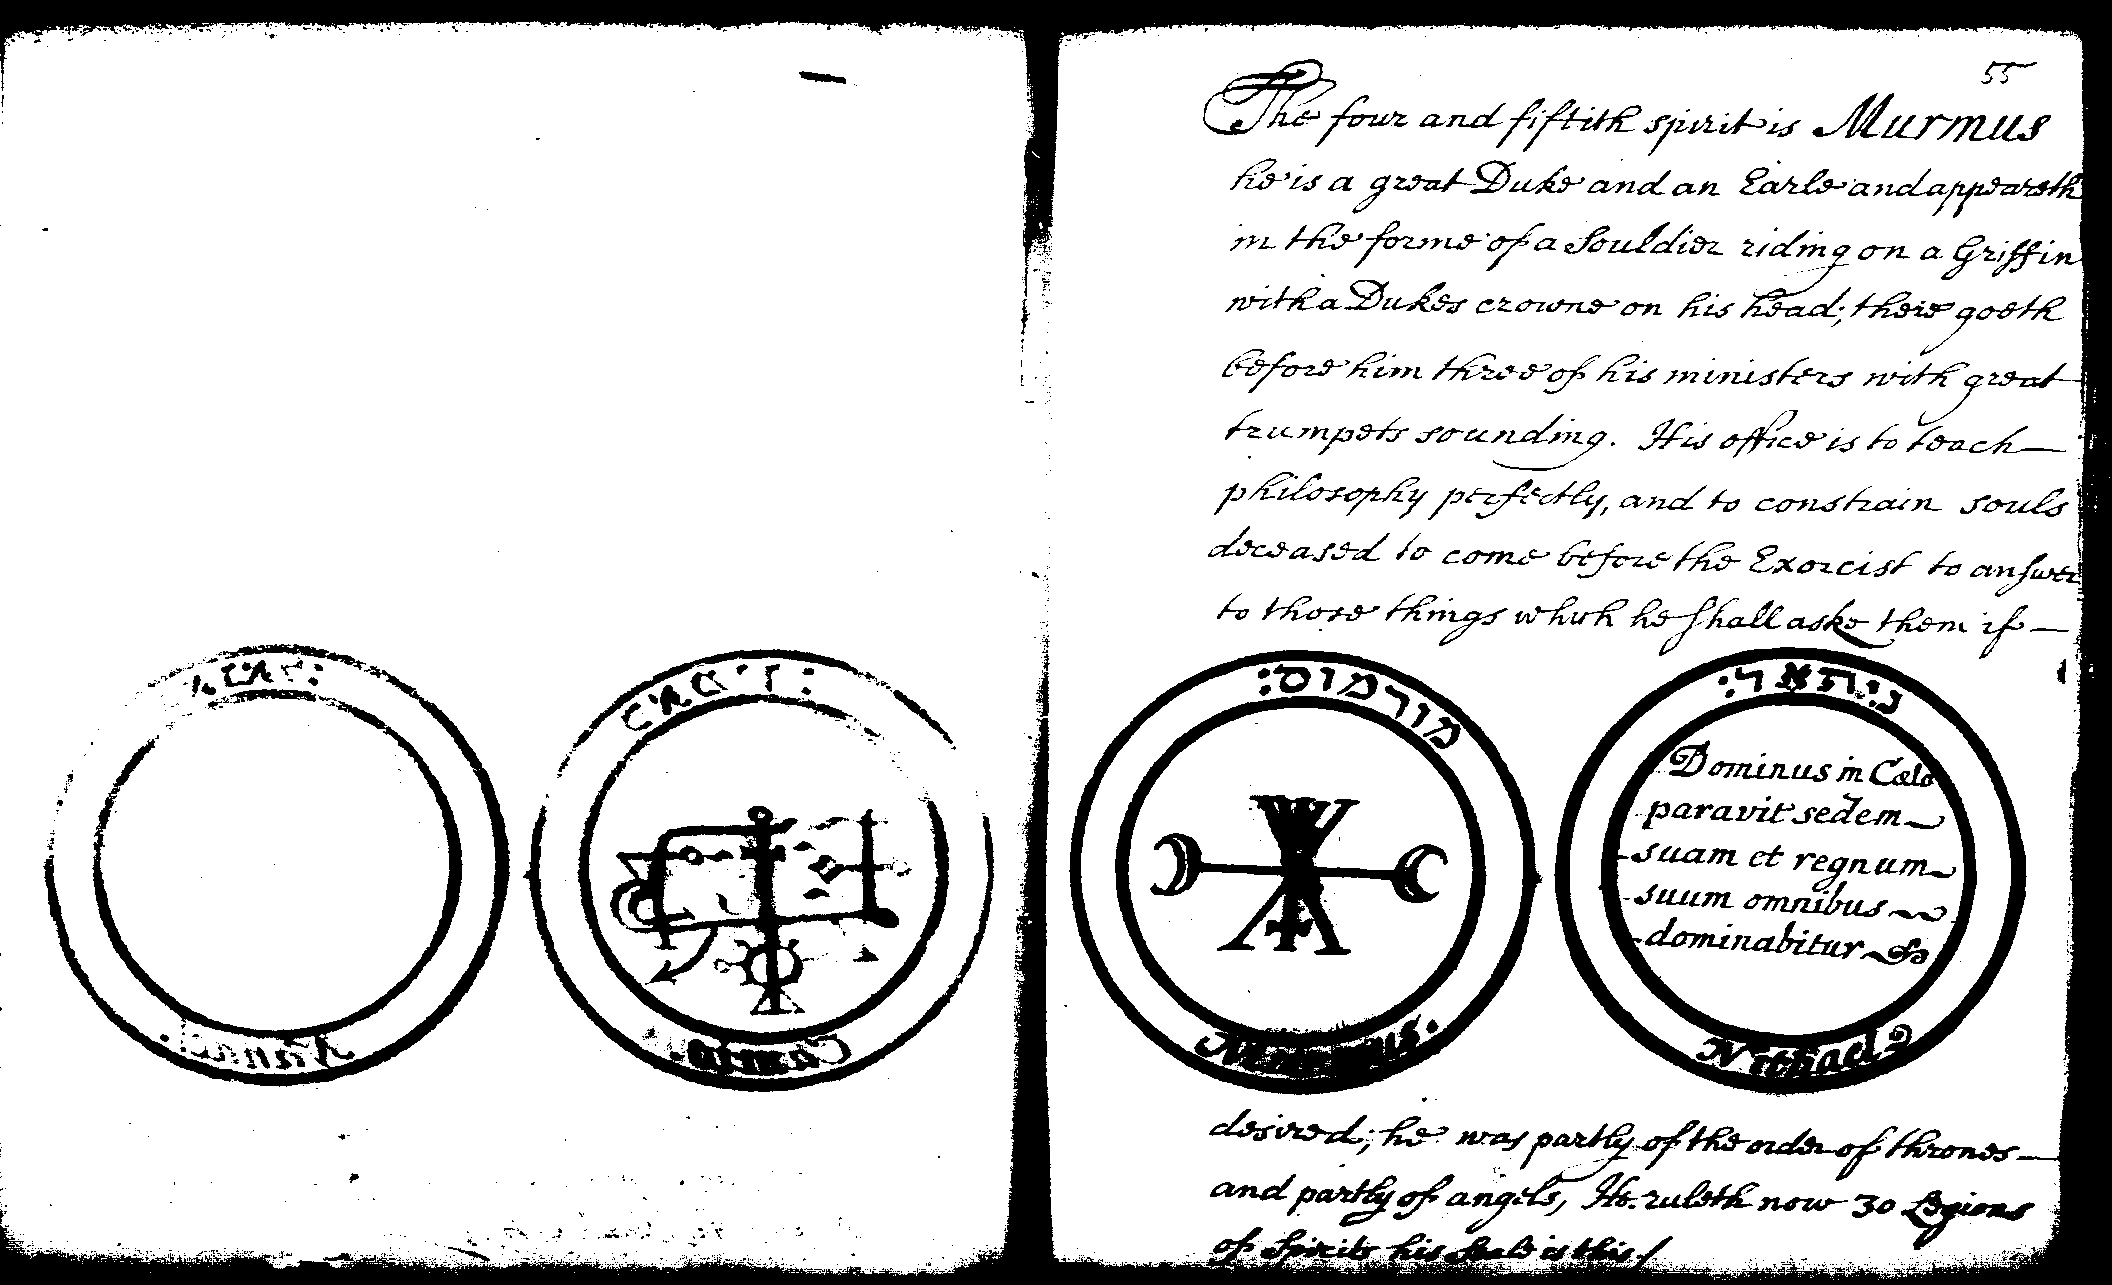 55
The four and fiftith spirit is Murmus
he is a great Duke and an Earle and appeareth
in the forme of a Souldier riding on a Griffin
with a Dukes crowne on his head; there goeth
before him three of his ministers with great
trumpets sounding. His office is to teach
philosophy perfectly, and to constrain souls
deceased to come before the Exorcist to answer
to those things which he shall aske them if
מורמוס:
Murmus.
ניתאל:
Dominus in Cælo
paravit sedem
suam et regnum
suum omnibus
dominabitur
Nithael
desired; he was partly of the order of thrones
and partly of angels, He ruleth now 30 Legions
of Spirits his Seale is this./